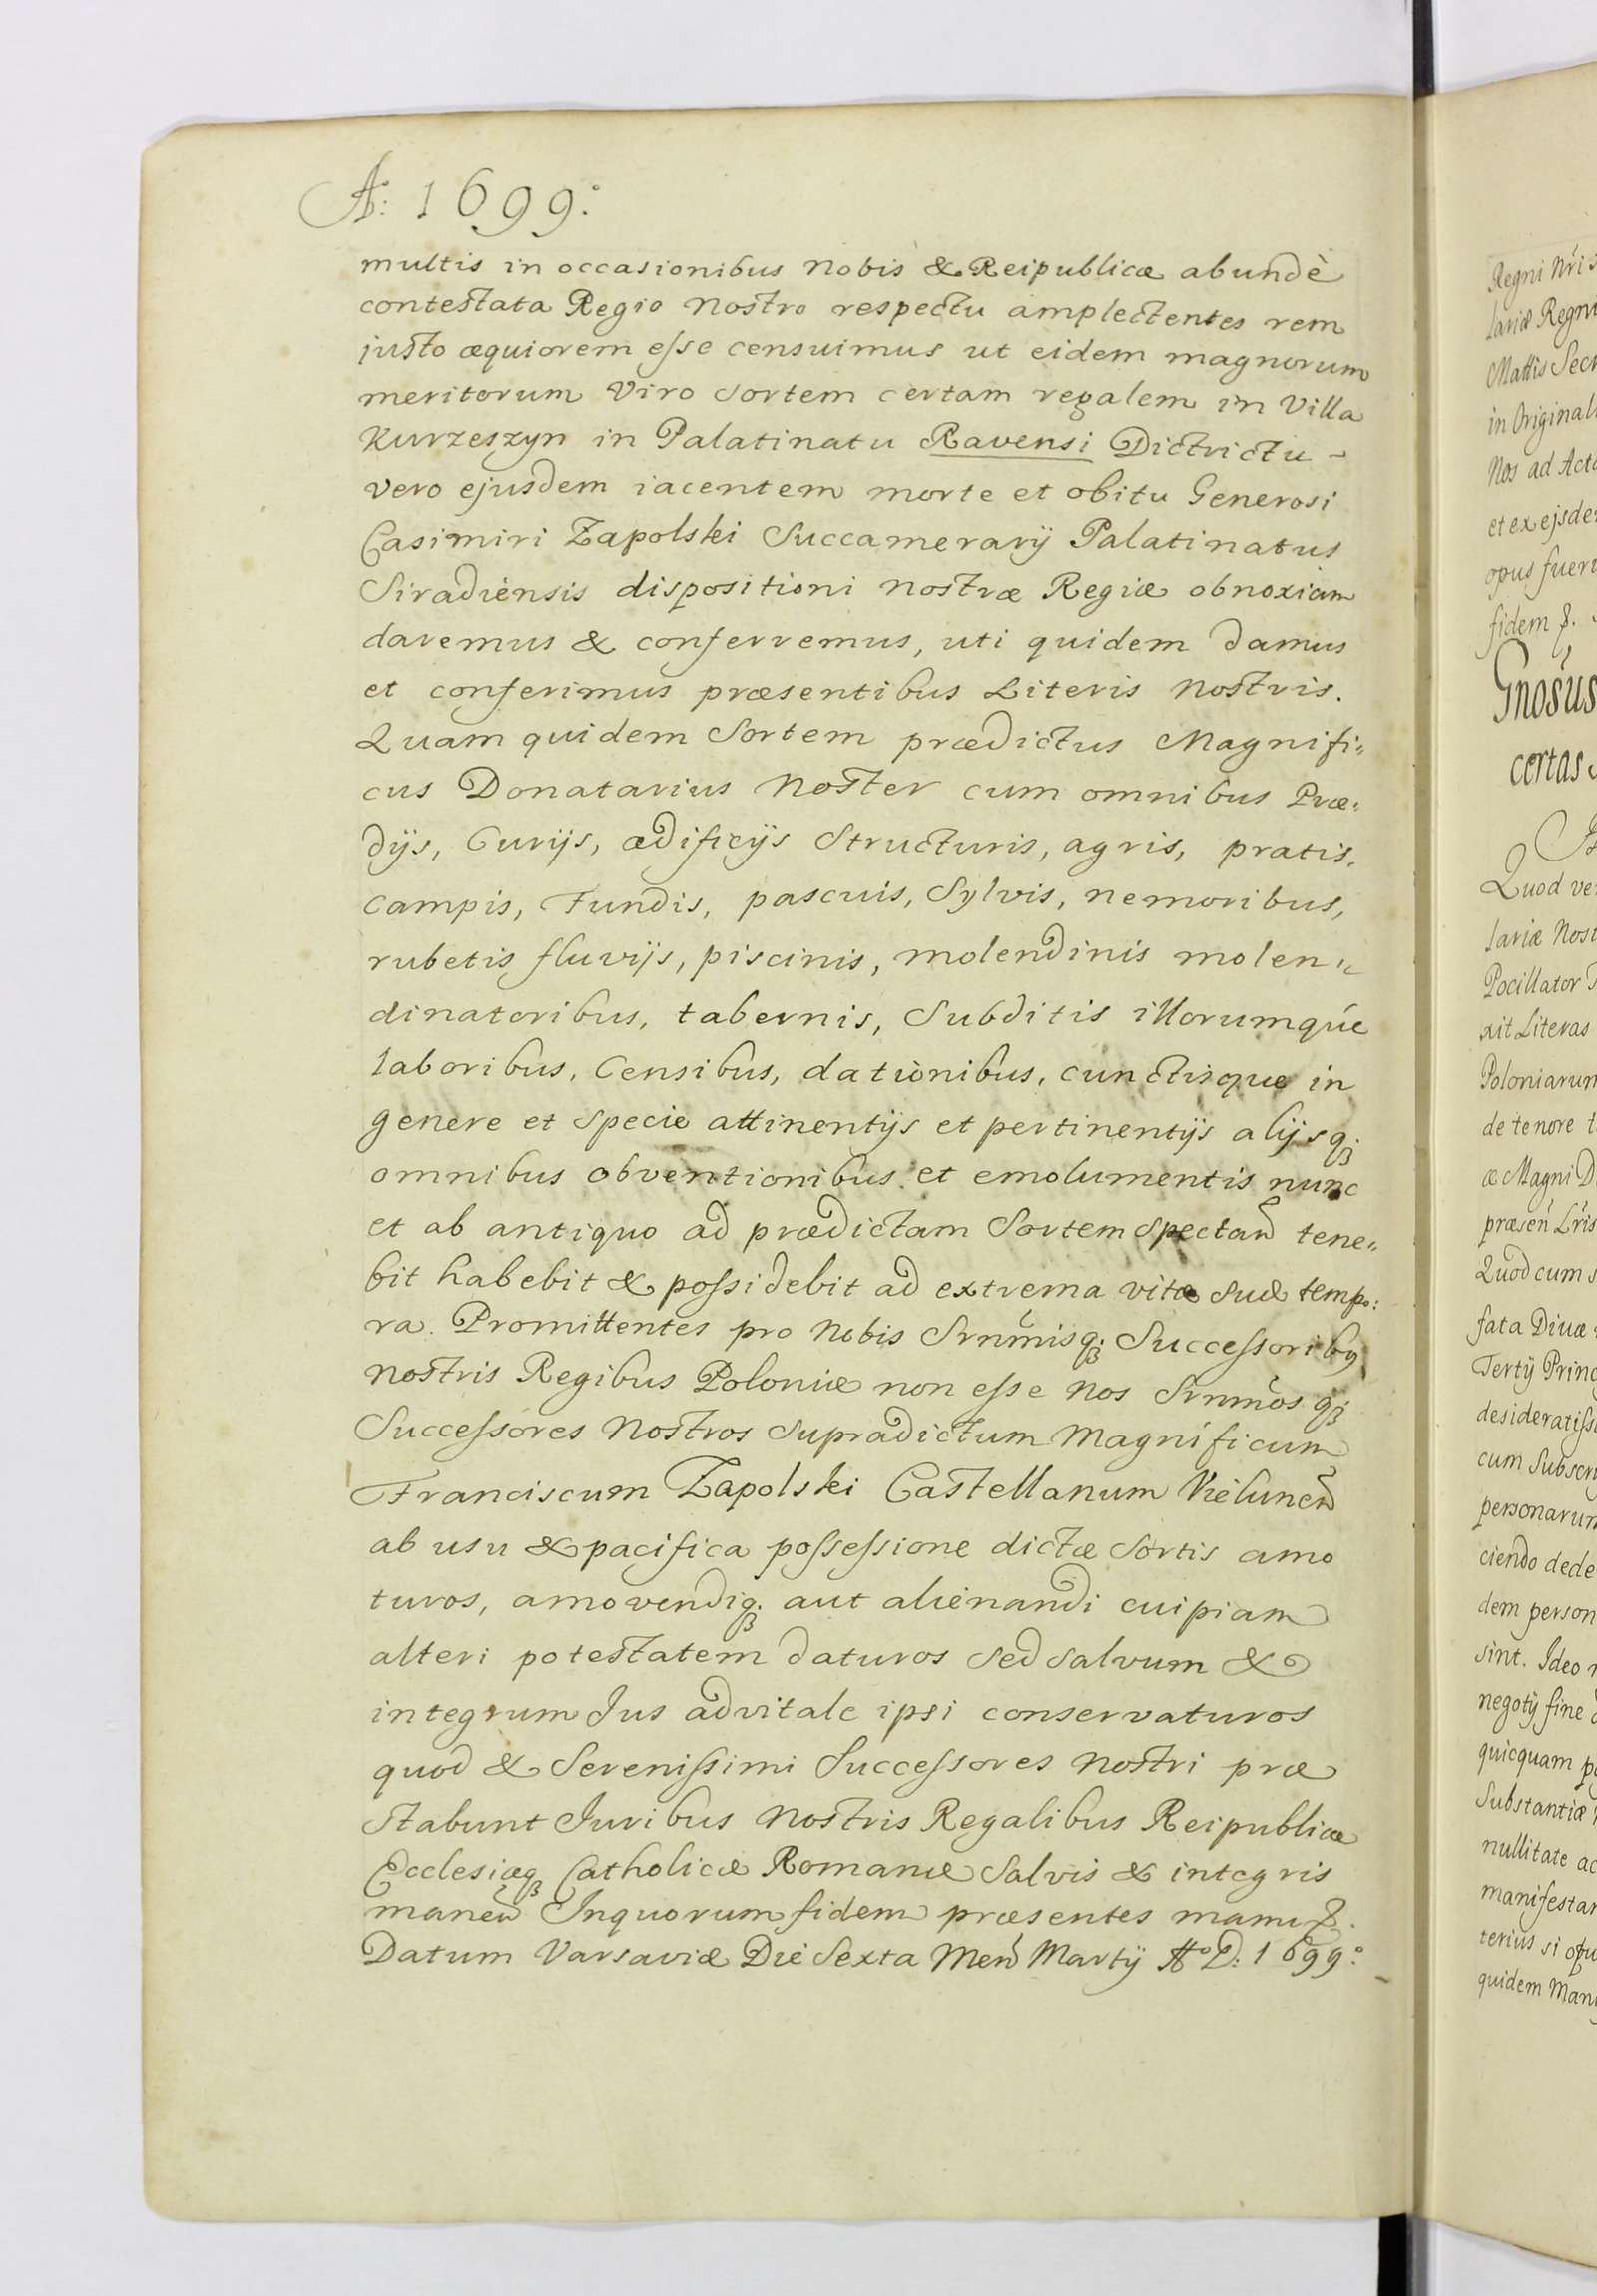 Aº: 1699º.
multis in occasionibus nobis & Reipublicæ abundè
contestata Regio nostro respectu amplectentes rem
justo æquiorem esse censuimus ut eidem magnorum
meritorum Viro Sortem certam regalem in Villa
Kurzeszyn in Palatinatu Ravensi Dictrictu
vero ejusdem iacentem morte et obitu Generosi
Casimiri Zapolski Succamerarij Palatinatus
Siradiensis dispositioni nostræ Regiæ obnoxiam
daremus & conferremus, uti quidem damus
et conferimus præsentibus Literis nostris.
Quam quidem Sortem prædictus Magnifi=
cus Donatarius Noster cum omnibus Præ=
dijs, Curijs, ædificijs Structuris, agris, pratis,
campis, Fundis, pascuis, Sylvis, nemoribus,
rubetis fluvijs, piscinis, molendinis molen=
dinatoribus, tabernis, Subditis illorumque
laboribus, Censibus, dationibus, cunctisque in
genere et specie attinentijs et pertinentijs alijsq;
omnibus obventionibus et emolumentis nunc
et ab antiquo ad prædictam Sortem spectan̄ tene=
bit habebit & possidebit ad extrema vitæ suæ tempo:
ra. Promittentes pro Nobis Srnm̄isq; Successoribq
nostris Regibus Poloniæ non esse nos Srnm̄os q;
Successores Nostros supradictum Magnificum
Franciscum Zapolski Castellanum Vielunen̄
ab usu & pacifica possessione dictæ Sortis amo
turos, amovendiq; aut alienandi cuipiam
alteri potestatem daturos sed salvum &
integrum Jus advitale ipsi conservaturos
quod & Serenissimi Successores nostri præ
stabunt Juribus nostris Regalibus Reipublicæ
Ecclesiæq; Catholicæ Romanæ Salvis & integris
manen̄ Inquorum fidem præsentes manu &.
Datum Varsaviæ Die Sexta Men̄ Martij Aº D: 1699º.
Regni Nr̄i
lariæ Regni
Mattis Secr
in Originali
Nos ad Acta
et ex ejsde
opus fueri
fidem &.
Gnosus
certas
Quod ve
lariæ Nost
Pocillator
xit Literas
Poloniarum
de tenore t
æ Magni D
præsen̄ Lr̄is
Quod cum s
fata Divæ
Tertij Princ
desideratiss
cum Subscri
personarum
ciendo dede
dem person
sint. Ideo
negotij fine
quicquam
Substantiæ
nullitate ac
manifestar
terius si
quidem Man